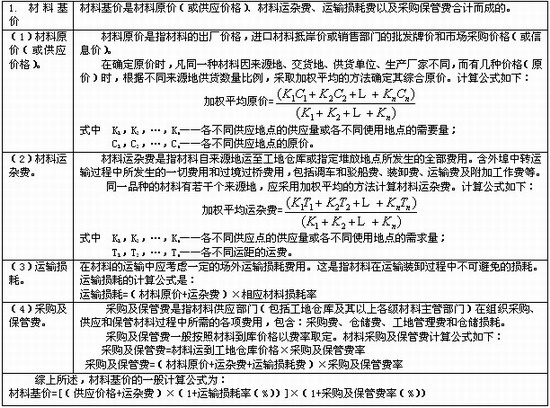 1. 材料基价
材料基价是材料原价（或供应价格）、材料运杂费、运输损耗费以及采购保管费合计而成的。
（1）材料原价（或供应价格）。
材料原价是指材料的出厂价格，进口材料抵岸价或销售部门的批发牌价和市场采购价格（或信息价）。
在确定原价时，凡同一种材料因来源地、交货地、供货单位、生产厂家不同，而有几种价格（原价）时，根据不同来源地供货数量比例，采取加权平均的方法确定其综合原价。计算公式如下：
加权平均原价=(K1C1+K2C2+L+KnCn)/(K1+K2+L+Kn)
式中 K1，K2，…，Kn——各不同供应地点的供应量或各不同使用地点的需要量；
C1，C2，…，Cn——各不同供应地点的原价。
（2）材料运杂费。
材料运杂费是指材料自来源地运至工地仓库或指定堆放地点所发生的全部费用。含外埠中转运输过程中所发生的一切费用和过境过桥费用，包括调车和驳船费、装卸费、运输费及附加工作费等。
同一品种的材料有若干个来源地，应采用加权平均的方法计算材料运杂费。计算公式如下：
加权平均运杂费=(K1T1+K2T2+L+KnTn)/(K1+K2+L+Kn)
式中 K1，K2，…，Kn——各不同供应点的供应量或各不同使用地点的需求量；
T1，T2，…，Tn——各不同运距的运费。
（3）运输损耗。
在材料的运输中应考虑一定的场外运输损耗费用。这是指材料在运输装卸过程中不可避免的损耗。
运输损耗的计算公式是：
运输损耗=（材料原价+运杂费）×相应材料损耗率
（4）采购及保管费。
采购及保管费是指材料供应部门（包括工地仓库及其以上各级材料主管部门）在组织采购、供应和保管材料过程中所需的各项费用，包含：采购费、仓储费、工地管理费和仓储损耗。
采购及保管费一般按照材料到库价格以费率取定。材料采购及保管费计算公式如下：
采购及保管费=材料运到工地仓库价格×采购及保管费率
采购及保管费=（材料原价+运杂费+运输损耗费）×采购及保管费率
综上所述，材料基价的一般计算公式为：
材料基价=[（供应价格+运杂费）×（1+运输损耗率（%））]×（1+采购及保管费率（%））